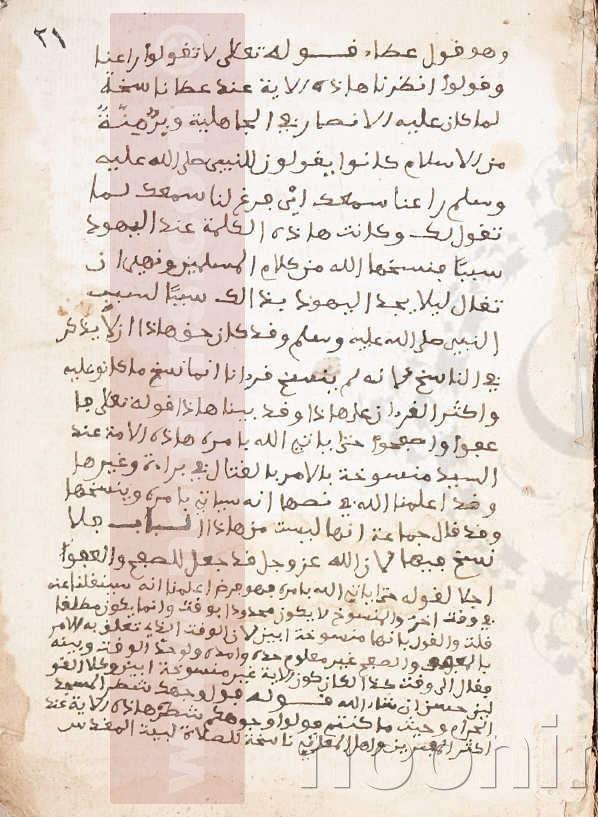 ٢١
وهو قول عطاء قوله تعالى لا تقولوا راعنا
وقولوا انظرنا هاذه الاية عند عطا ناسخة
لما كان عليه الانصار في الجاهلية وبرهة
من الاسلام كانوا يقولون للنبي صلى الله عليه
وسلم راعنا سمعك اي فرغ لنا سمعك لما
نقول لك وكانت هاذه الكلمة عند اليهود
سبّا فنسخها الله من كلام المسلمين ونهى ان
تقال ليلا يجد اليهود بذالك سببًا لسب
النبي صلى الله عليه وسلم وقد كان حق هاذا ان لا يذكر
في الناسخ لانه لم ينسخ قرءانا انما نسخ ما كانو عليه
واكثر القرءان على هاذا وقد بينا هاذا قوله تعلى فا
عفوا واصفحوا حتى ياتي الله بامره هاذه الاية عند
السدي منسوخة بالامر بالقتال في براءة وغيرها
وقد اعلمنا الله في نصها انه سياتي بامره وينسخها
وقد قال جماعة انها ليست من هاذا الباب فلا
نسخ فيها لان الله عز وجل قد جعل للصفح والعفو
اجلا لقوله حتى ياتي الله بامره فهو فرض اعلمنا انه سينقلنا عنه
في وقت اخر والمنسوخ لا يكون محدودا بوقت وانما يكون مطلقا
قلت والقول بانها منسوخة ابين لان الوقت الذي تعلق به الامر
بالعفو والصفح غير معلوم حده وامده ولو حد الوقت وبينه
فقال الى وقت كذا لكان كون الاية غير منسوخة ابين وكلا القو
لين حسن ان شاء الله قوله فول وجهك شطر المسجد
الحرام وحيث ما كنتم فولوا وجوهكم شطره هاذه الاية عند
اكثر المفسرين واهل المعاني ناسخة للصلاة لبيت المقدس
noorli